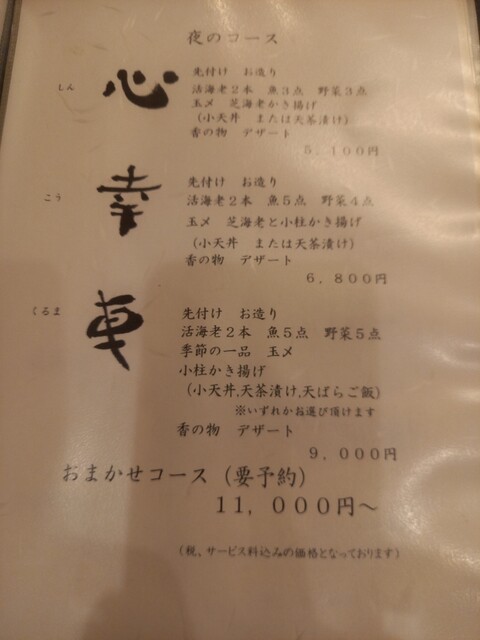 夜のコース
しん
心
先付け お造り
活海老2本 魚3点 野菜3点
玉〆 芝海老かき揚げ
(小天丼 または天茶漬け)
香の物 デザート
5,100円
こう
幸
先付け お造り
活海老2本 魚5点 野菜4点
玉〆 芝海老と小柱かき揚げ
(小天丼 または天茶漬け)
香の物 デザート
6,800円
くるま
車
先付け お造り
活海老2本 魚5点 野菜5点
季節の一品 玉〆
小柱かき揚げ
(小天丼,天茶漬け,天ばらご飯)
※いずれかお選び頂けます
香の物 デザート
9,000円
おまかせコース(要予約)
11,000円～
(税、サービス料込みの価格となっております)